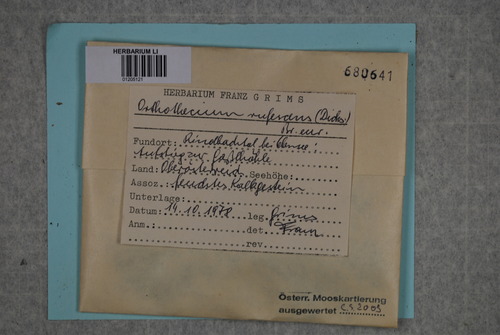 HERBARIUM LI
01200121
680641
HERBARIUM FRANZ GRIMS
Orthothecium rufescens (Dicks.)
Br. eur.
Fundort: Rindbachtal bei Ebensee:
Aufstieg zur Gasslhöhle
Land: Oberösterreich Seehöhe:
Assoz. feuchtes Kalkgestein
Unterlage:
Datum: 14.10.1978 leg. Grims
Anm. det. Franz
rev.
Österr. Mooskartierung
ausgewertet CS 2003